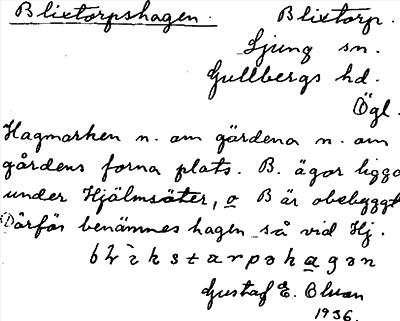 Blixtorpshagen. Blixtorp.
Ljung sn.
Gullbergs hd.
Ögl.
Hagmarken n. om gärdena n. om
gårdens forna plats. B. ägor ligga
under Hjälmsäter, o B är obebyggt
Därför benämnes hagen så vid Hj.
Gustaf E.
1936.